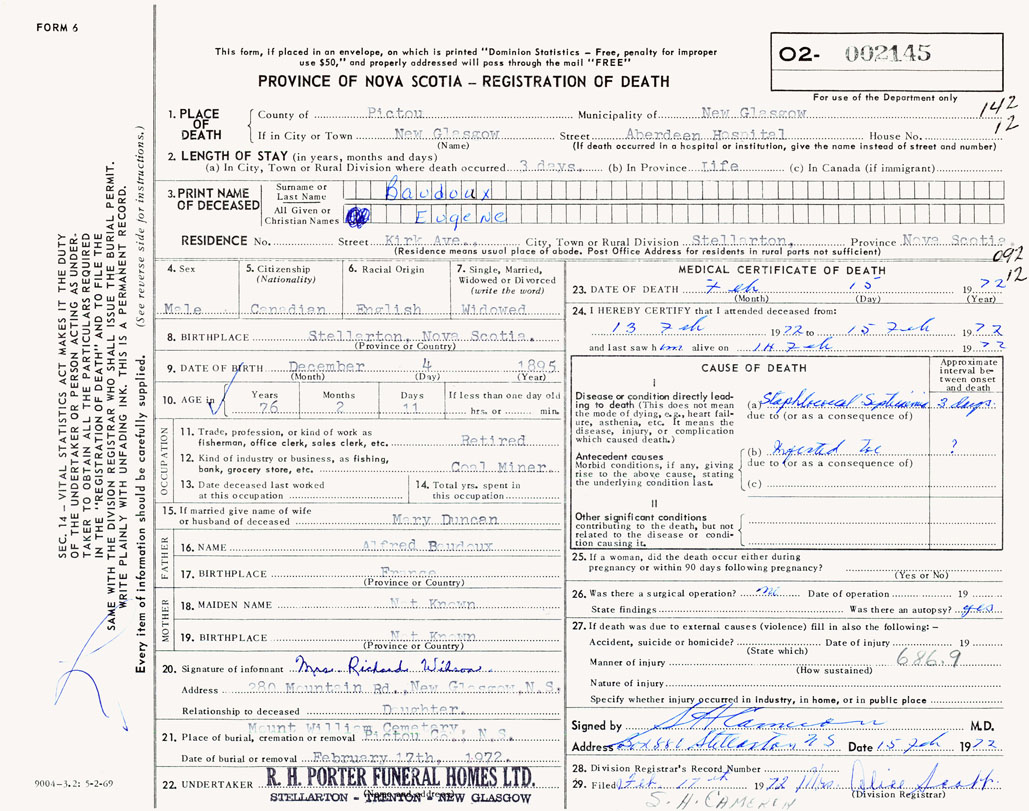 FORM 6
This form, if placed in an envelope, on which is printed "Dominion Statistics – Free, penalty for improper
use $50," and properly addressed will pass through the mail "FREE"
PROVINCE OF NOVA SCOTIA – REGISTRATION OF DEATH
O2- 002145
For use of the Department only
142
12
1. PLACE OF DEATH
County of Pictou Municipality of New Glasgow
If in City or Town New Glasgow Street Aberdeen Hospital House No.
(Name) (If death occurred in a hospital or institution, give the name instead of street and number)
2. LENGTH OF STAY (in years, months and days)
(a) In City, Town or Rural Division where death occurred 3 days. (b) In Province Life (c) In Canada (if immigrant)
3. PRINT NAME OF DECEASED
Surname or Last Name Baudoux
All Given or Christian Names Eugene
RESIDENCE No. Street Kirk Ave., City, Town or Rural Division Stellarton, Province Nova Scotia.
(Residence means usual place of abode. Post Office Address for residents in rural parts not sufficient)
092
12
4. Sex
Male
5. Citizenship
(Nationality)
Canadian
6. Racial Origin
English
7. Single, Married,
Widowed or Divorced
(write the word)
Widowed
8. BIRTHPLACE Stellarton, Nova Scotia.
(Province or Country)
9. DATE OF BIRTH December 4 1895
(Month) (Day) (Year)
10. AGE in
Years Months Days If less than one day old
76 2 11 hrs. or min.
OCCUPATION
11. Trade, profession, or kind of work as
fisherman, office clerk, sales clerk, etc. Retired
12. Kind of industry or business, as fishing,
bank, grocery store, etc. Coal Miner
13. Date deceased last worked
at this occupation
14. Total yrs. spent in
this occupation
15. If married give name of wife
or husband of deceased Mary Duncan
FATHER
16. NAME Alfred Baudoux
17. BIRTHPLACE France
(Province or Country)
MOTHER
18. MAIDEN NAME Not Known
19. BIRTHPLACE Not Known
(Province or Country)
20. Signature of informant Mrs. Richard Wilson
Address 280 Mountain Rd., New Glasgow, N.S.
Relationship to deceased Daughter.
Mount William Cemetery,
21. Place of burial, cremation or removal Pictou Co., N.S.
Date of burial or removal February 17th, 1972
22. UNDERTAKER R. H. PORTER FUNERAL HOMES LTD.
STELLARTON - TRENTON - NEW GLASGOW
MEDICAL CERTIFICATE OF DEATH
23. DATE OF DEATH Feb 15 1972
(Month) (Day) (Year)
24. I HEREBY CERTIFY that I attended deceased from:
13 Feb 1972 to 15 Feb 1972
and last saw him alive on 14 Feb 1972
CAUSE OF DEATH
Approximate
interval be-
tween onset
and death
I
Disease or condition directly lead-
ing to death (This does not mean
the mode of dying, e.g., heart fail-
ure, asthenia, etc. It means the
disease, injury, or complication
which caused death.)
(a) 3 days
due to (or as a consequence of)
Antecedent causes
Morbid conditions, if any, giving
rise to the above cause, stating
the underlying condition last.
(b) Infected Toe ?
due to (or as a consequence of)
(c)
II
Other significant conditions
contributing to the death, but not
related to the disease or condi-
tion causing it.
25. If a woman, did the death occur either during
pregnancy or within 90 days following pregnancy?
(Yes or No)
26. Was there a surgical operation? no Date of operation 19
State findings Was there an autopsy? yes
27. If death was due to external causes (violence) fill in also the following: –
Accident, suicide or homicide? Date of injury 19
(State which)
686.9
Manner of injury
(How sustained)
Nature of injury
Specify whether injury occurred in industry, in home, or in public place
Signed by S H Cameron M.D.
Address Box 886 Stellarton N S Date 15 Feb 1972
28. Division Registrar's Record Number
29. Filed Feb 17th 1972 Mrs. Alice Scott
(Division Registrar)
S. H. CAMERON
9004-3.2: 5-2-69
SEC. 14 – VITAL STATISTICS ACT MAKES IT THE DUTY
OF THE UNDERTAKER OR PERSON ACTING AS UNDER-
TAKER TO OBTAIN ALL THE PARTICULARS REQUIRED
IN THE "REGISTRATION OF DEATH" AND TO FILE THE
SAME WITH THE DIVISION REGISTRAR WHO SHALL ISSUE THE BURIAL PERMIT.
WRITE PLAINLY WITH UNFADING INK. THIS IS A PERMANENT RECORD.
Every item of information should be carefully supplied. (See reverse side for instructions.)